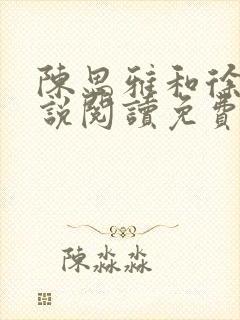 陳思雅和徐
說閱讀免費
陳淼淼